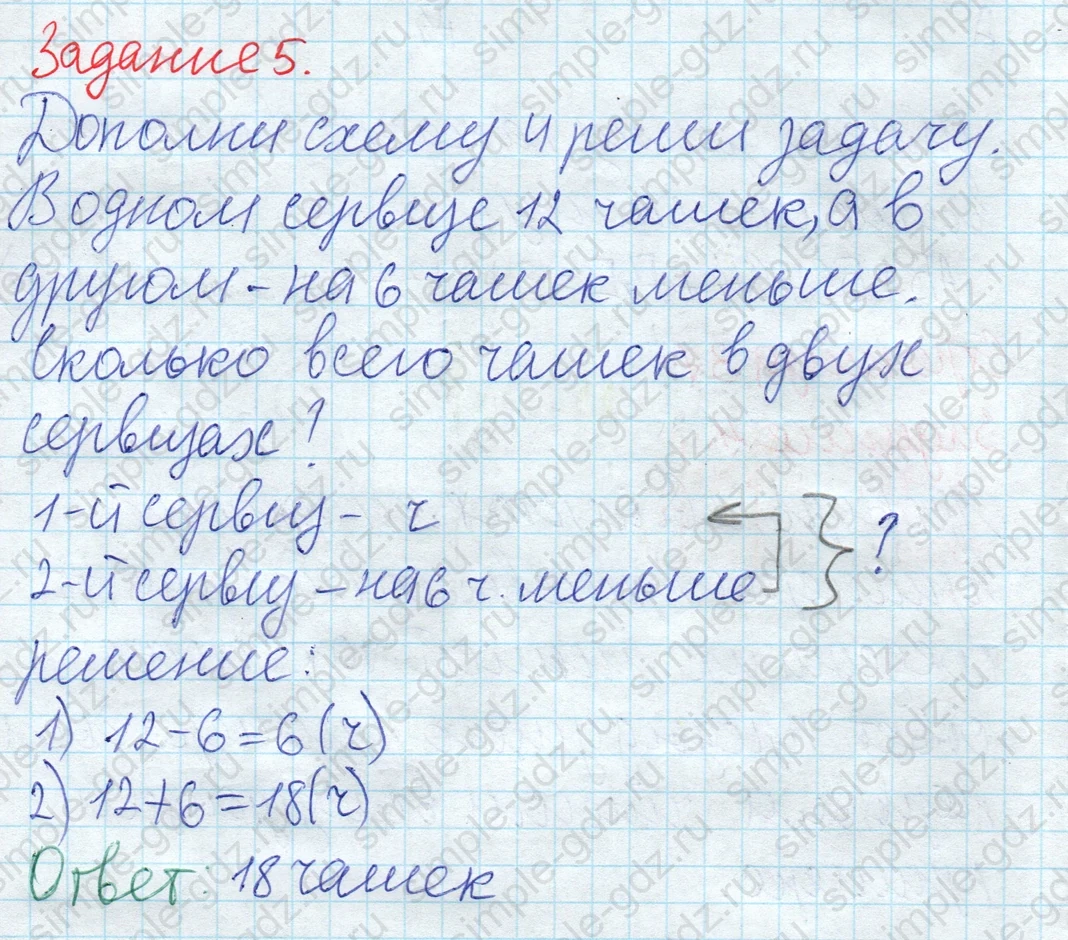 Задание 5.
Дополни схему и реши задачу.
В одном сервизе 12 чашек, а в
другом - на 6 чашек меньше.
Сколько всего чашек в двух
сервизах?
1-й сервиз - ч
2-й сервиз - на 6 ч. меньше } ?
решение:
1) 12-6=6(ч)
2) 12+6=18(ч)
Ответ: 18 чашек
simple-gdz.ru